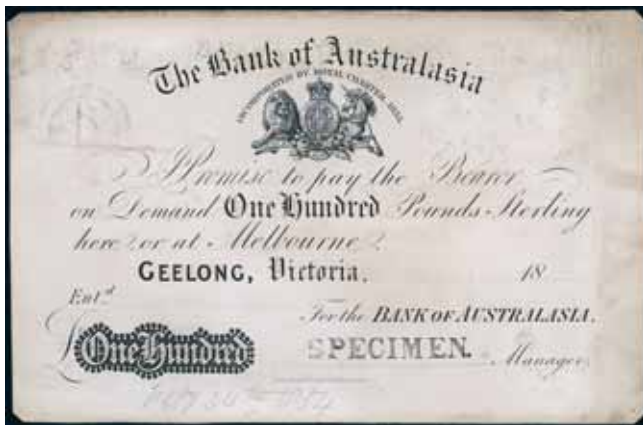 The Bank of Australasia
INCORPORATED BY ROYAL CHARTER, 1835.
I Promise to pay the Bearer
on Demand One Hundred Pounds Sterling
here or at Melbourne.
GEELONG, Victoria. 18
Ent.d
For the BANK OF AUSTRALASIA.
£ One Hundred SPECIMEN. Manager.